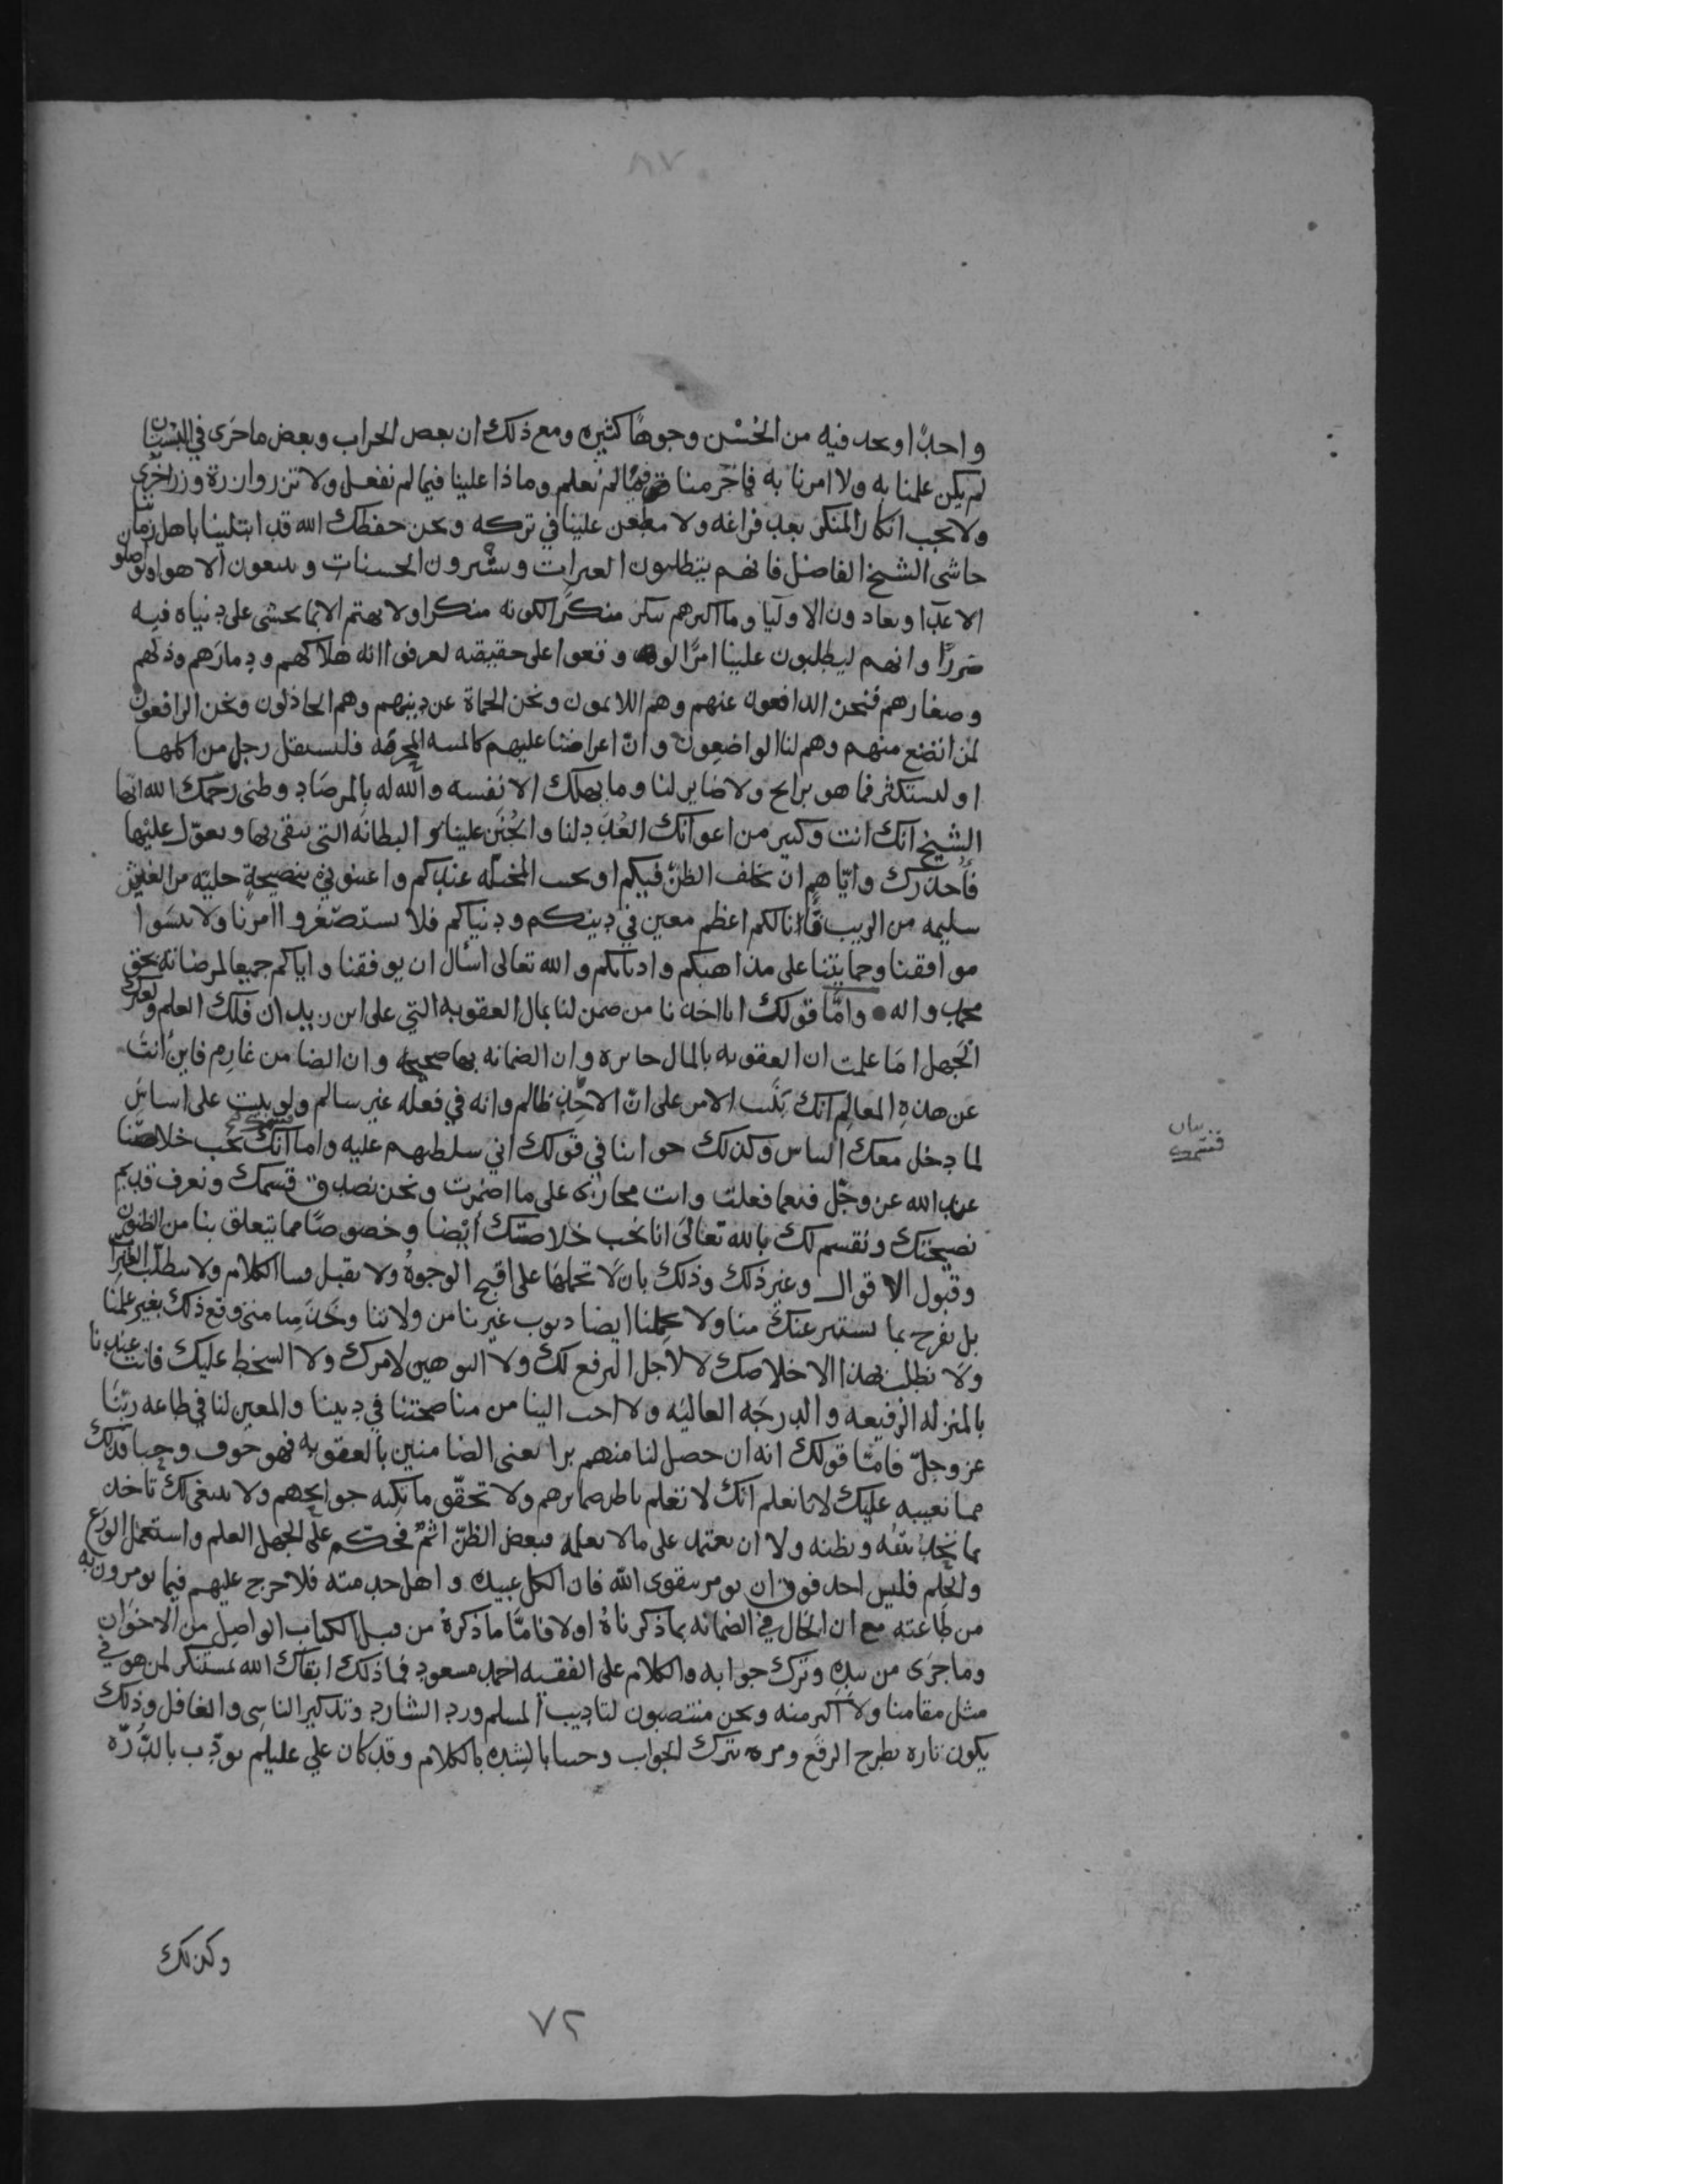 ٨٧
واحدًا وىحد فيه من الحُسْن وجوهًا كثيره ومع ذلك ان بعض الخراب وبعض ما جَرى في البستان
لم يكن علمنا به ولا امرنا به فما جُرمنا فيمَا لم نعلم وماذا علينا فيما لم نفعل ولا تزر وازرة وزر اخرى
ولا يجب انكار المنكر بعد فراغه ولا مطعن علينا في تركه ونحن حفظك الله قد ابتلينا باهل زمان
حاشى الشيخ الفاضل فانهم يتطلبون العثرات ويسترون الحسنات ويتبعون الاهوا
الاعدا ويعادون الاوليا وما اكثرهم ينكر منكرًا لكونه منكرا ولا يهتم الا بما يخشى على دنياه فيه
ضررًا وانهم ليطلبون علينا امرًا لو وقعوا على حقيقته لعرفوا انه هلاكهم ودمارهم وذلهم
وصغارهم فنحن الدافعون عنهم وهم اللايمون ونحن الحماة عن دينهم وهم الخاذلون ونحن الرافعون
لمن اتضع منهم وهم لنا الواضعون وان اعراضنا عليهم كالميتة المحرمة فليستقل رجل من اكلها
او ليستكثر فما هو برابح ولا ضاير لنا وما يهلك الا نفسه والله له بالمرصاد وظنى رحمك الله ايها
الشيخ انك انت وكثير من اعوانك العُدَد لنا والجُنَن علينا والبطانة التي نتقى بها ونعوّل عليها
فأحذرك واياهم ان نخلف الظنّ فيكم او نخيب المخيلة عندكم واعينوني بنصيحةٍ خليّه من الغش
سليمه من الريب فانا لكم اعظم معين في دينكم ودنياكم فلا تستصغروا امرنا ولا تنسَوا
موافقنا وحمايتنا على مذاهبكم واديانكم والله تعالى أسأل ان يوفقنا واياكم جميعا لمرضاته بحق
محمد واله • وامّا قولك انا اخذنا من ضمن لنا بمال العقوبه التي على ابن زيدان فلك العلم
الجهل اما علمت ان العقوبه بالمال جايزه وان الضمانه بها صحيحه وان الضامن غارم فاين أنت
عن هذهِ المعالم انك بَنَيت الامر على انّ الاخِذ ظالم وانه في فعله غير سالم ولو بنيت على اساسٍ
لما دخل معك الباس وكذلك جوابنا في قولك اني سلطتهم عليه واما انك تحب خلاصنا
عند الله عز وجل فنعما فعلت وانت مجازى على ما اضمرت ونحن نصدق قسمك ونعرف قديم
نصيحتك ونقسم لك بالله تعالىَ انا نحب خلاصتك أيضا وخصوصًا مما يتعلق بنا من الظنون
وقبول الاقوال وغير ذلك وذلك بان لا تحملها على اقبح الوجوهُ ولا تقبل فينا الكلام ولا تتطلب العثرات
بل تفرح بما تستتر عنك منا ولا تحملنا ايضا ذنوب غيرنا من ولاتنا ونحن متى وقع ذلك بغير علمنا
ولا نطلب بهذا الا خلاصك لا لأجل الترفع لك ولا التوهين لامرك ولا السخط عليك فانت عندنا
بالمنزله الرفيعه والدرجه العاليه ولا احب الينا من مناصحتنا في ديننا والمعين لنا في طاعه ربّنا
عز وجلّ فامّا قولك انه ان حصل لنا منهم برا يعنى الضامنين بالعقوبه فهو خوف وحيا فذلك
مما نعيبه عليك لانا نعلم انك لا تعلم باطن ضمايرهم ولا تحقّق ما تكنه جوانحهم ولا ينبغى لك تاخذ
بما تخدُ بتقه وتظنه ولا ان تعتمد على مالا تعلمه فبعض الظنّ اثمٌ فحكّم على الجهل العلم واستعمل الورع
والحلم فليس احد فوق ان يومر بتقوى الله فان الكل عبيده واهل خدمته فلا حرج عليهم فيما يومرون به
من طاعته مع ان الحال في الضمانه بما ذكرناهُ اولا فامّا ما ذكرة من قبل الكتاب الواصل من الاخوان
وما جرَى من نبذه وترك جوابه والكلام على الفقيه احمد مسعود فما ذلك ابقاك الله بمستنكر لمن هو في
مثل مقامنا ولا اكبر منه ونحن منتصبون لتاديب المسلم ورد الشارد وتذكير الناسى والغافل وذلك
يكون تاره بطرح الرفع ومره بترك الجواب وحينا بالشده بالكلام وقد كان علي عليلم يودّب بالدُرّه
وكذلك
٧٢